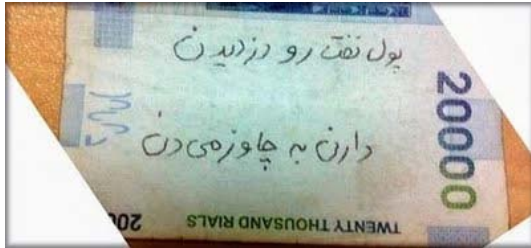 پول نفت رو دزدیدن
20000
دارن به چاوز می دن
TWENTY THOUSAND RIALS